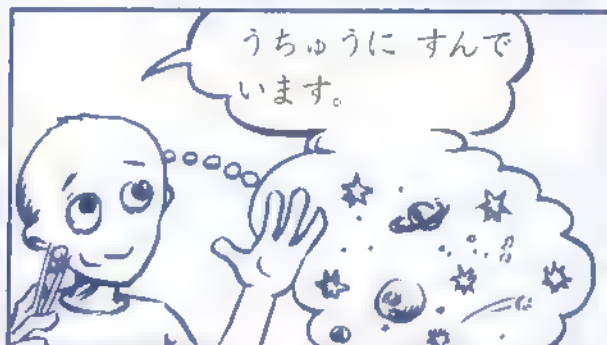 うちゅうに すんで
います。